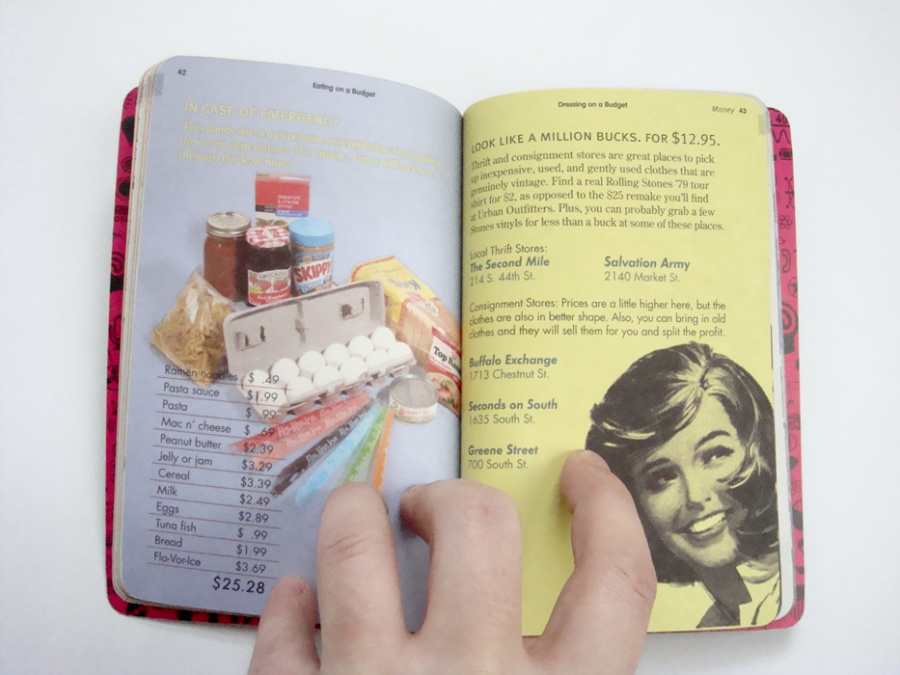 42
Eating on a Budget
IN CASE OF EMERGENCY
SKIPPY
Top R
Fla-Vor-Ice
Ramen noodles $ .49
Pasta sauce $1.99
Pasta $ .99
Mac n' cheese $ .69
Peanut butter $2.39
Jelly or jam $3.29
Cereal $3.39
Milk $2.49
Eggs $2.89
Tuna fish $ .99
Bread $1.99
Fla-Vor-Ice $3.69
$25.28
Dressing on a Budget
Money 43
LOOK LIKE A MILLION BUCKS. FOR $12.95.
Thrift and consignment stores are great places to pick
up inexpensive, used, and gently used clothes that are
genuinely vintage. Find a real Rolling Stones '79 tour
shirt for $2, as opposed to the $25 remake you'll find
at Urban Outfitters. Plus, you can probably grab a few
Stones vinyls for less than a buck at some of these places.
Local Thrift Stores:
The Second Mile
214 S. 44th St.
Salvation Army
2140 Market St.
Consignment Stores: Prices are a little higher here, but the
clothes are also in better shape. Also, you can bring in old
clothes and they will sell them for you and split the profit.
Buffalo Exchange
1713 Chestnut St.
Seconds on South
1635 South St.
Greene Street
700 South St.